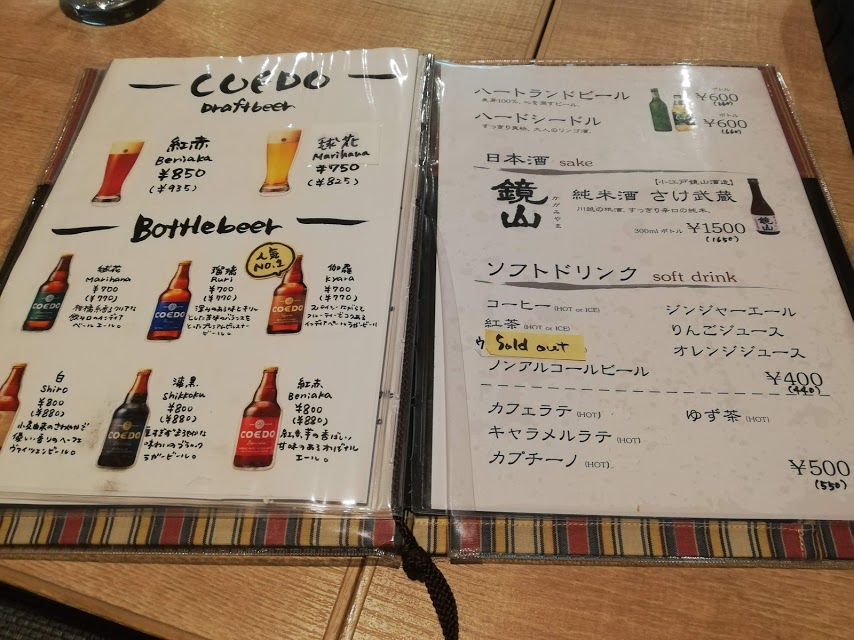 COEDO
Draftbeer
紅赤
Beniaka
¥850
(¥935)
毬花
Marihana
¥750
(¥825)
Bottlebeer
毬花
Marihana
¥700
(¥770)
瑠璃
Ruri
¥700
(¥770)
人気
NO.1
伽羅
Kyara
¥700
(¥770)
白
Shiro
¥800
(¥880)
漆黒
Shikkoku
¥800
(¥880)
紅赤
Beniaka
¥800
(¥880)
COEDO
COEDO
COEDO
COEDO
COEDO
ハートランドビール
ボトル
¥600
(660)
ハードシードル
すっきり爽快、大人のリンゴ酒。
ボトル
¥600
(660)
日本酒 sake
鏡山
かがみやま
【小江戸鏡山酒造】
純米酒 さけ武蔵
川越の地酒。すっきり辛口の純米。
300ml ボトル ¥1500
(1650)
鏡山
ソフトドリンク soft drink
コーヒー (HOT or ICE)
紅茶 (HOT or ICE)
ウ Sold out
ノンアルコールビール
ジンジャーエール
りんごジュース
オレンジジュース
¥400
(440)
カフェラテ (HOT)
キャラメルラテ (HOT)
カプチーノ (HOT)
ゆず茶 (HOT)
¥500
(550)